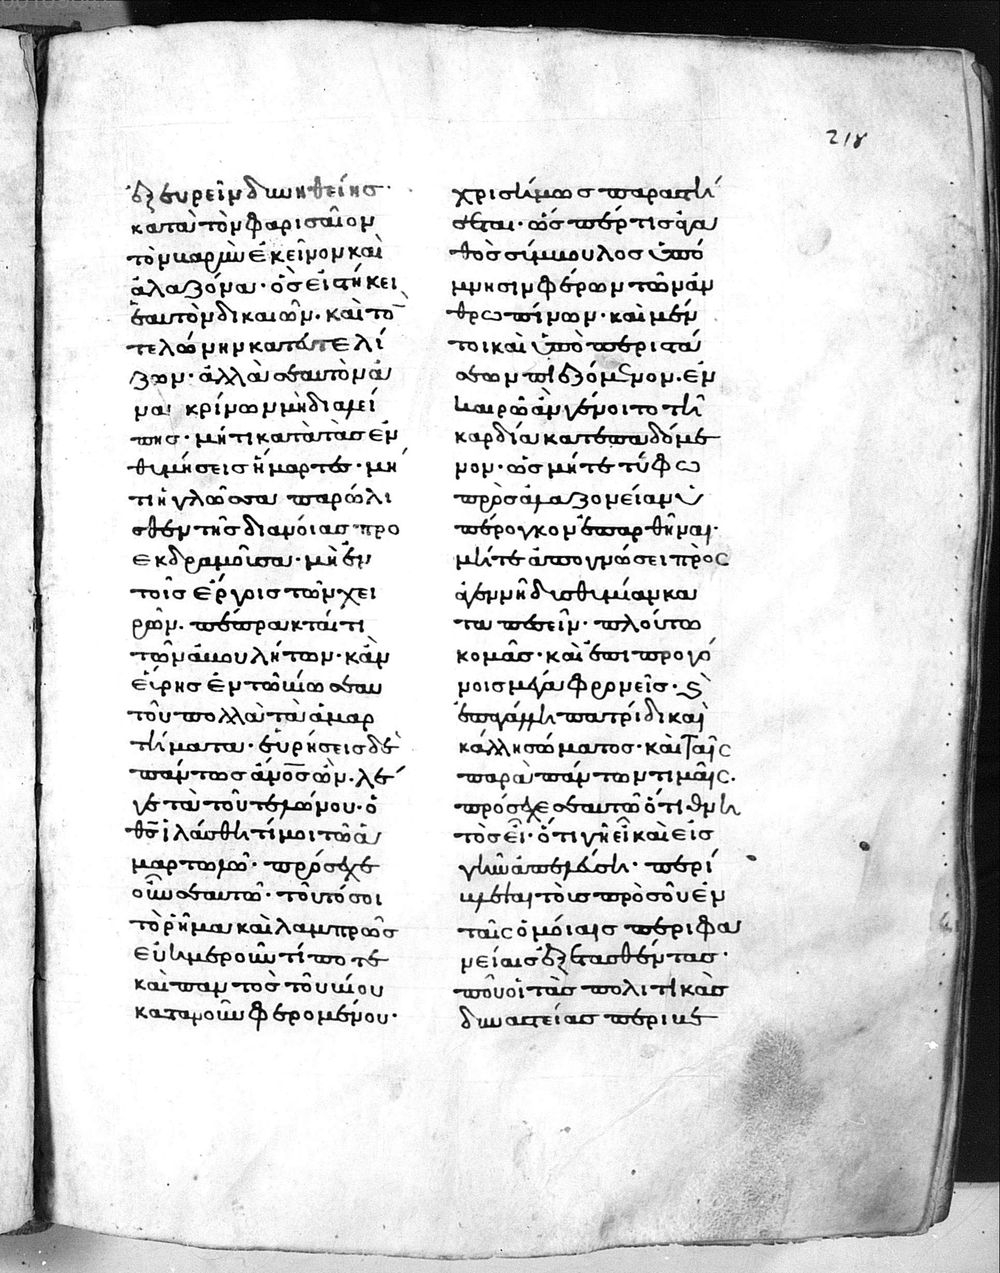 218
ἐξευρεῖν δυνηθείης·
κατὰ τὸν φαρισαῖον
τὸν βαρὺν ἐκεῖνον καὶ
ἀλαζόνα· ὃς εἱστήκει
ἑαυτὸν δικαιῶν· καὶ τὸν
τελώνην κατευτελί
ζων· ἀλλὰ σεαυτὸν ἀ
νακρίνων μὴ διαλεί
πης· μή τι κατὰ τὰς ἐν
θυμήσεις ἥμαρτες· μή
τι ἡ γλῶσσα παρωλί
σθεν τῆς διανοίας προ
εκδραμοῦσα· μὴ ἐν
τοῖς ἔργοις τῶν χει
ρῶν· πέπρακταί τι
τῶν ἀβουλήτων· κἂν
εὕρης ἐν τῷ βίῳ σεαυ
τοῦ πολλὰ τὰ ἁμαρ
τήματα· εὑρήσεις δὲ
πάντως ἄνος ὤν· λέ
γε τὰ τοῦ τελώνου· ὁ
θς ἱλάσθητί μοι τῷ ἁ
μαρτωλῷ· πρόσεχε
οὖν σεαυτῷ· τοῦτό σοι
τὸ ῥῆμα καὶ λαμπρῶς
εὐημεροῦντί ποτε
καὶ παντὸς τοῦ βίου
κατὰ ροῦν φερομένου·
χρησίμως παραστή
σεται· ὥσπερ τις ἀγα
θὸς σύμβουλος ὑπό
μνησιν φέρων τῶν ἀν
θρωπίνων· καὶ μέν
τοι καὶ ὑπὸ περιστά
σεων πιεζόμενον· ἐν
καιρῷ ἂν γένοιτο τῇ
καρδίᾳ κατεπαδόμε
νον· ὡς μήτε τύφῳ
πρὸς ἀλαζονείαν ὑ
πέρογκον ἐπαρθῆναι·
μήτε ἀπογνώσει πρὸς
ἀγεννῆ δυσθυμίαν κα
ταπεσεῖν· πλούτω
κομᾶς· καὶ ἐπὶ προγό
νοις μέγα φρονεῖς· καὶ
ἐπαγάλλη πατρίδι καὶ
κάλλη σώματος· καὶ ταῖς
παρὰ πάντων τιμαῖς·
πρόσεχε σεαυτῷ ὅτι θνη
τὸς εἶ· ὅτι γῆ εἶ καὶ εἰς
γῆν ἀπελεύση· περί
βλεψαι τοὺς πρὸ σοῦ ἐν
ταῖς ὁμοίαις περιφα
νείαις ἐξετασθέντας·
ποῦ οἱ τὰς πολιτικὰς
δυναστείας περιβε